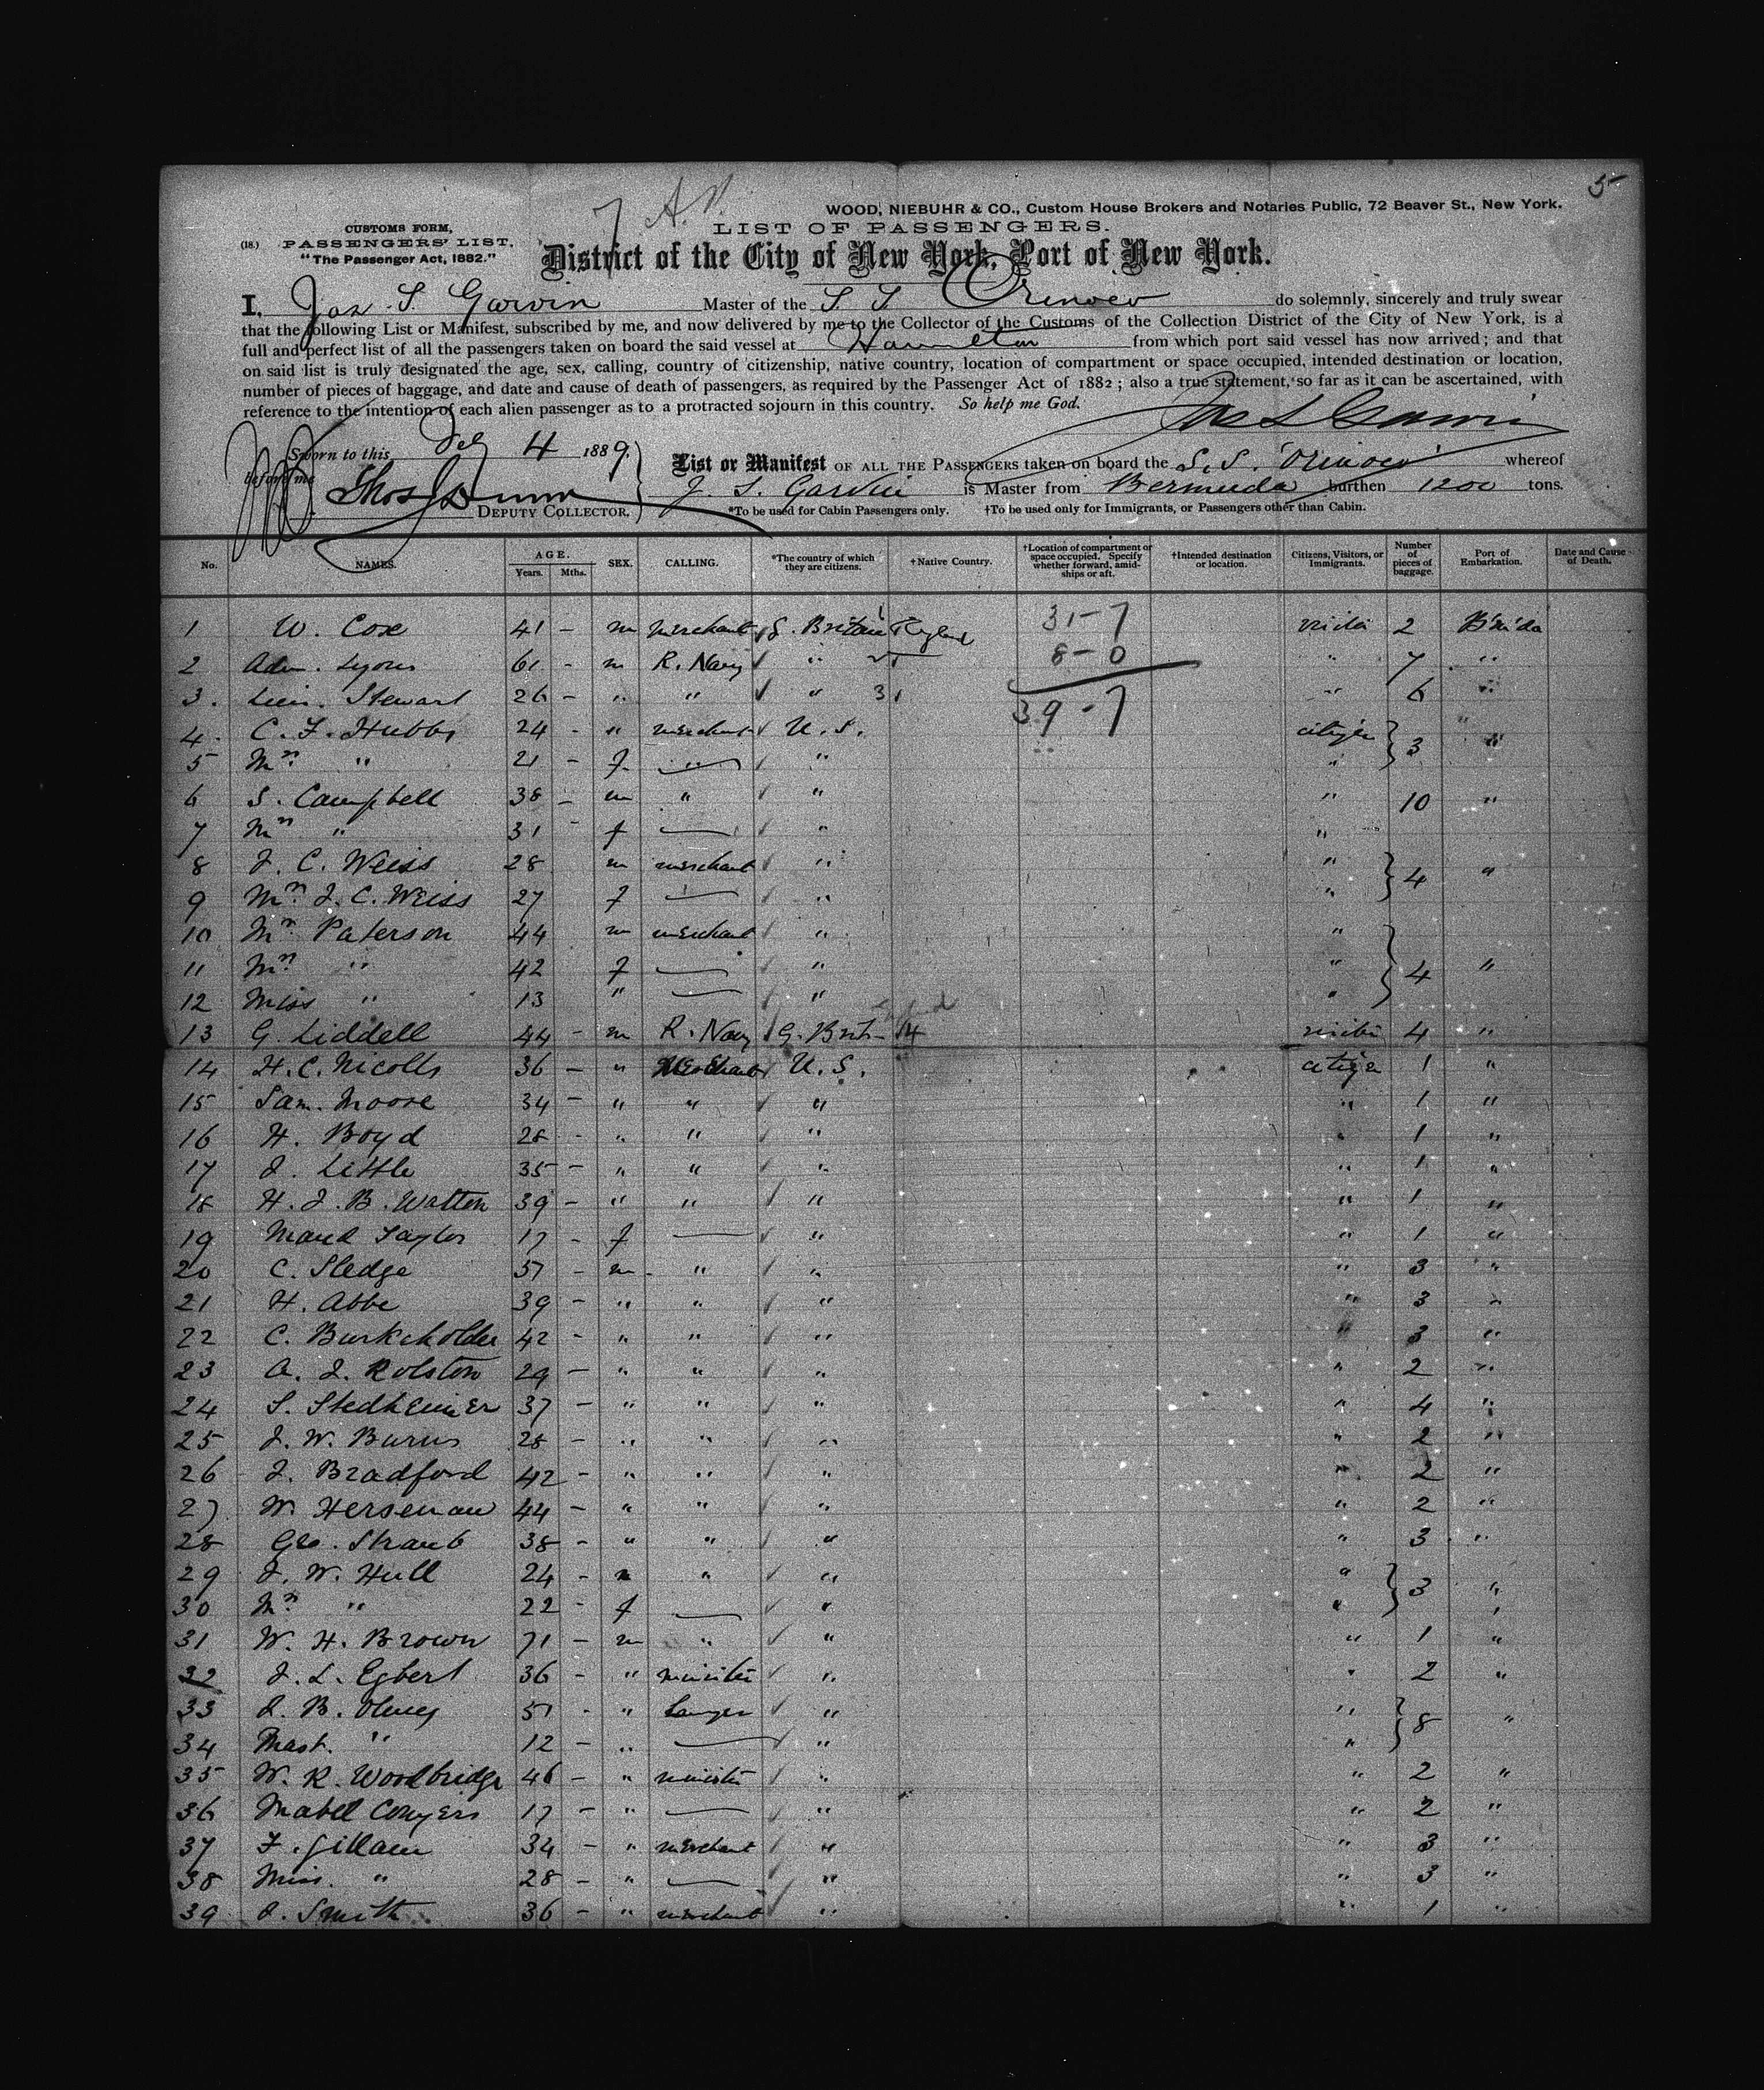 5
7 A.P.
WOOD, NIEBUHR & CO., Custom House Brokers and Notaries Public, 72 Beaver St., New York.
CUSTOMS FORM,
(18.) PASSENGERS' LIST,
"The Passenger Act, 1882."
LIST OF PASSENGERS.
District of the City of New York, Port of New York.
I, Jas S. Garvin Master of the S. S. Orinoco do solemnly, sincerely and truly swear
that the following List or Manifest, subscribed by me, and now delivered by me to the Collector of the Customs of the Collection District of the City of New York, is a
full and perfect list of all the passengers taken on board the said vessel at Hamilton from which port said vessel has now arrived; and that
on said list is truly designated the age, sex, calling, country of citizenship, native country, location of compartment or space occupied, intended destination or location,
number of pieces of baggage, and date and cause of death of passengers, as required by the Passenger Act of 1882; also a true statement, so far as it can be ascertained, with
reference to the intention of each alien passenger as to a protracted sojourn in this country. So help me God.
Jas S Garvin
Sworn to this 4 1889
before me Thos Dunn
DEPUTY COLLECTOR.
List or Manifest OF ALL THE PASSENGERS taken on board the S.S. "Orinoco" whereof
J. S. Garvin is Master from Bermuda burthen 1200 tons.
*To be used for Cabin Passengers only. †To be used only for Immigrants, or Passengers other than Cabin.
No. NAMES. AGE. Years. Mths. SEX. CALLING. *The country of which they are citizens. †Native Country. †Location of compartment or space occupied. Specify whether forward, amidships or aft. †Intended destination or location. Citizens, Visitors, or Immigrants. Number of pieces of baggage. Port of Embarkation. Date and Cause of Death.
1 W. Cox 41 - m merchant G. Britain England 31-7 2 B'm'da
2 Adm. Lyons 61 - m R. Navy " 8-0 " 7 "
3. Lieu. Stewart 26 - " " " 3 39-7 " 6 "
4. C. F. Hubbs 24 - " merchant U. S. citizen 3 "
5 Mrs " 21 - f - " "
6 S. Campbell 38 - m " " " 10 "
7 Mrs " 31 - f - " "
8 J. C. Weiss 28 m merchant " " 4 "
9 Mrs J. C. Weiss 27 f - " "
10 Mr Paterson 44 m merchant " "
11 Mrs " 42 f - " " 4 "
12 Miss " 13 " - " "
13 G. Liddell 44 - m R. Navy G. Brit- 4 4 "
14 H. C. Nicolls 36 - " Merchant U. S. citizen 1 "
15 Sam. Moore 34 - " " " " 1 "
16 H. Boyd 28 - " " " " 1 "
17 J. Little 35 - " " " " 1 "
18 H. J. B. Watten 39 - " " " " 1 "
19 Maud Taylor 17 - f - " " 1 "
20 C. Sledge 57 - m " " " 3 "
21 H. Abbe 39 - " " " " 3 "
22 C. Burkholder 42 - " " " " 3 "
23 A. J. Rolston 29 - " " " " 2 "
24 S. Stedheimer 37 - " " " " 4 "
25 J. W. Burns 28 - " " " " 2 "
26 J. Bradford 42 - " " " " 2 "
27 W. Herseman 44 - " " " " 2 "
28 Geo. Straub 38 - " " " " 3 "
29 J. W. Hull 24 - m " " " 3 "
30 Mrs " 22 - f - " " "
31 W. H. Brown 71 - m " " " 1 "
32 J. L. Egbert 36 - " minister " " 2 "
33 J. B. Olney 51 - " Lawyer " " 8 "
34 Mast. " 12 - " - " "
35 W. R. Woodbridge 46 - " minister " " 2 "
36 Mabel Conyers 17 - " - " " 2 "
37 F. Gillam 34 - " merchant " " 3 "
38 Miss. " 28 - " - " " 3 "
39 J. Smith 36 - " merchant " " 1 "